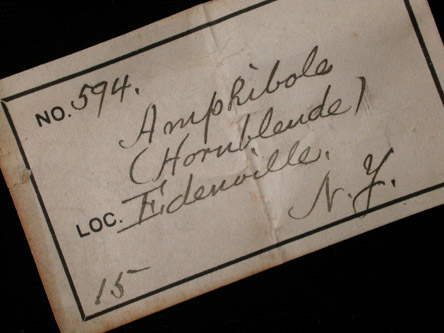 NO. 594.
Amphibole
(Hornblende)
LOC. Edenville.
N. Y.
15